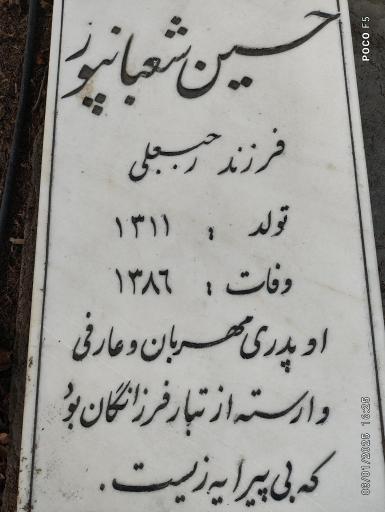 حسین شعبانپور
فرزند رجبعلی
تولد : ۱۳۱۱
وفات : ۱۳۸۶
او پدری مهربان و عارفی
وارسته از تبار فرزانگان بود
که بی پیرایه زیست .
POCO F5
08/01/2025 16:25